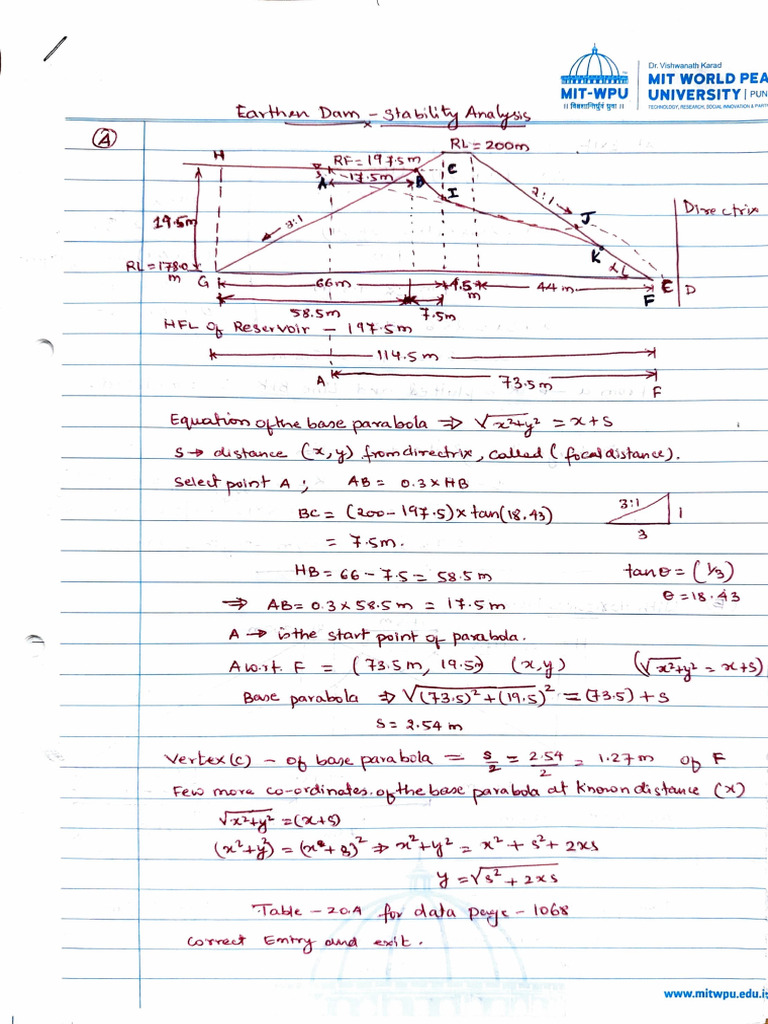 Dr. Vishwanath Karad
MIT WORLD PEA
UNIVERSITY | PUN
TECHNOLOGY, RESEARCH, SOCIAL INNOVATION & PART
MIT-WPU
॥ विश्वशान्तिर्ध्रुवं ध्रुवा ॥
Earthen Dam - Stability Analysis
A
RL = 200m
H
RF = 197.5m
C
S
A
17.5m
B
I
2:1
J
Directrix
19.5m
3:1
K
RL = 178.0
m
G
αL
E
D
F
66m
4.5
m
44m
58.5m
7.5m
HFL of Reservoir - 197.5m
114.5m
A
73.5m
F
Equation of the base parabola ⇒ √x²+y² = x+s
S → distance (x,y) from directrix, called (focal distance).
Select point A ; AB = 0.3 x HB
BC = (200-197.5) x tan(18.43)
3:1
1
3
= 7.5m.
HB = 66 - 7.5 = 58.5m
tanθ = (1/3)
θ = 18.43
⇒ AB = 0.3 x 58.5m = 17.5m
A → is the start point of parabola.
A w.r.t. F = (73.5m, 19.5) (x,y) (√x²+y² = x+s)
Base parabola ⇒ √(73.5)²+(19.5)² = (73.5)+s
s = 2.54 m
Vertex(c) - of base parabola = s/2 = 2.54/2 = 1.27m of F
Few more co-ordinates of the base parabola at known distance (x)
√x²+y² = (x+s)
(x²+y²) = (x+s)² ⇒ x²+y² = x²+s²+2xs
y = √s²+2xs
Table - 20.A for data page - 1068
Correct Entry and exit.
www.mitwpu.edu.i